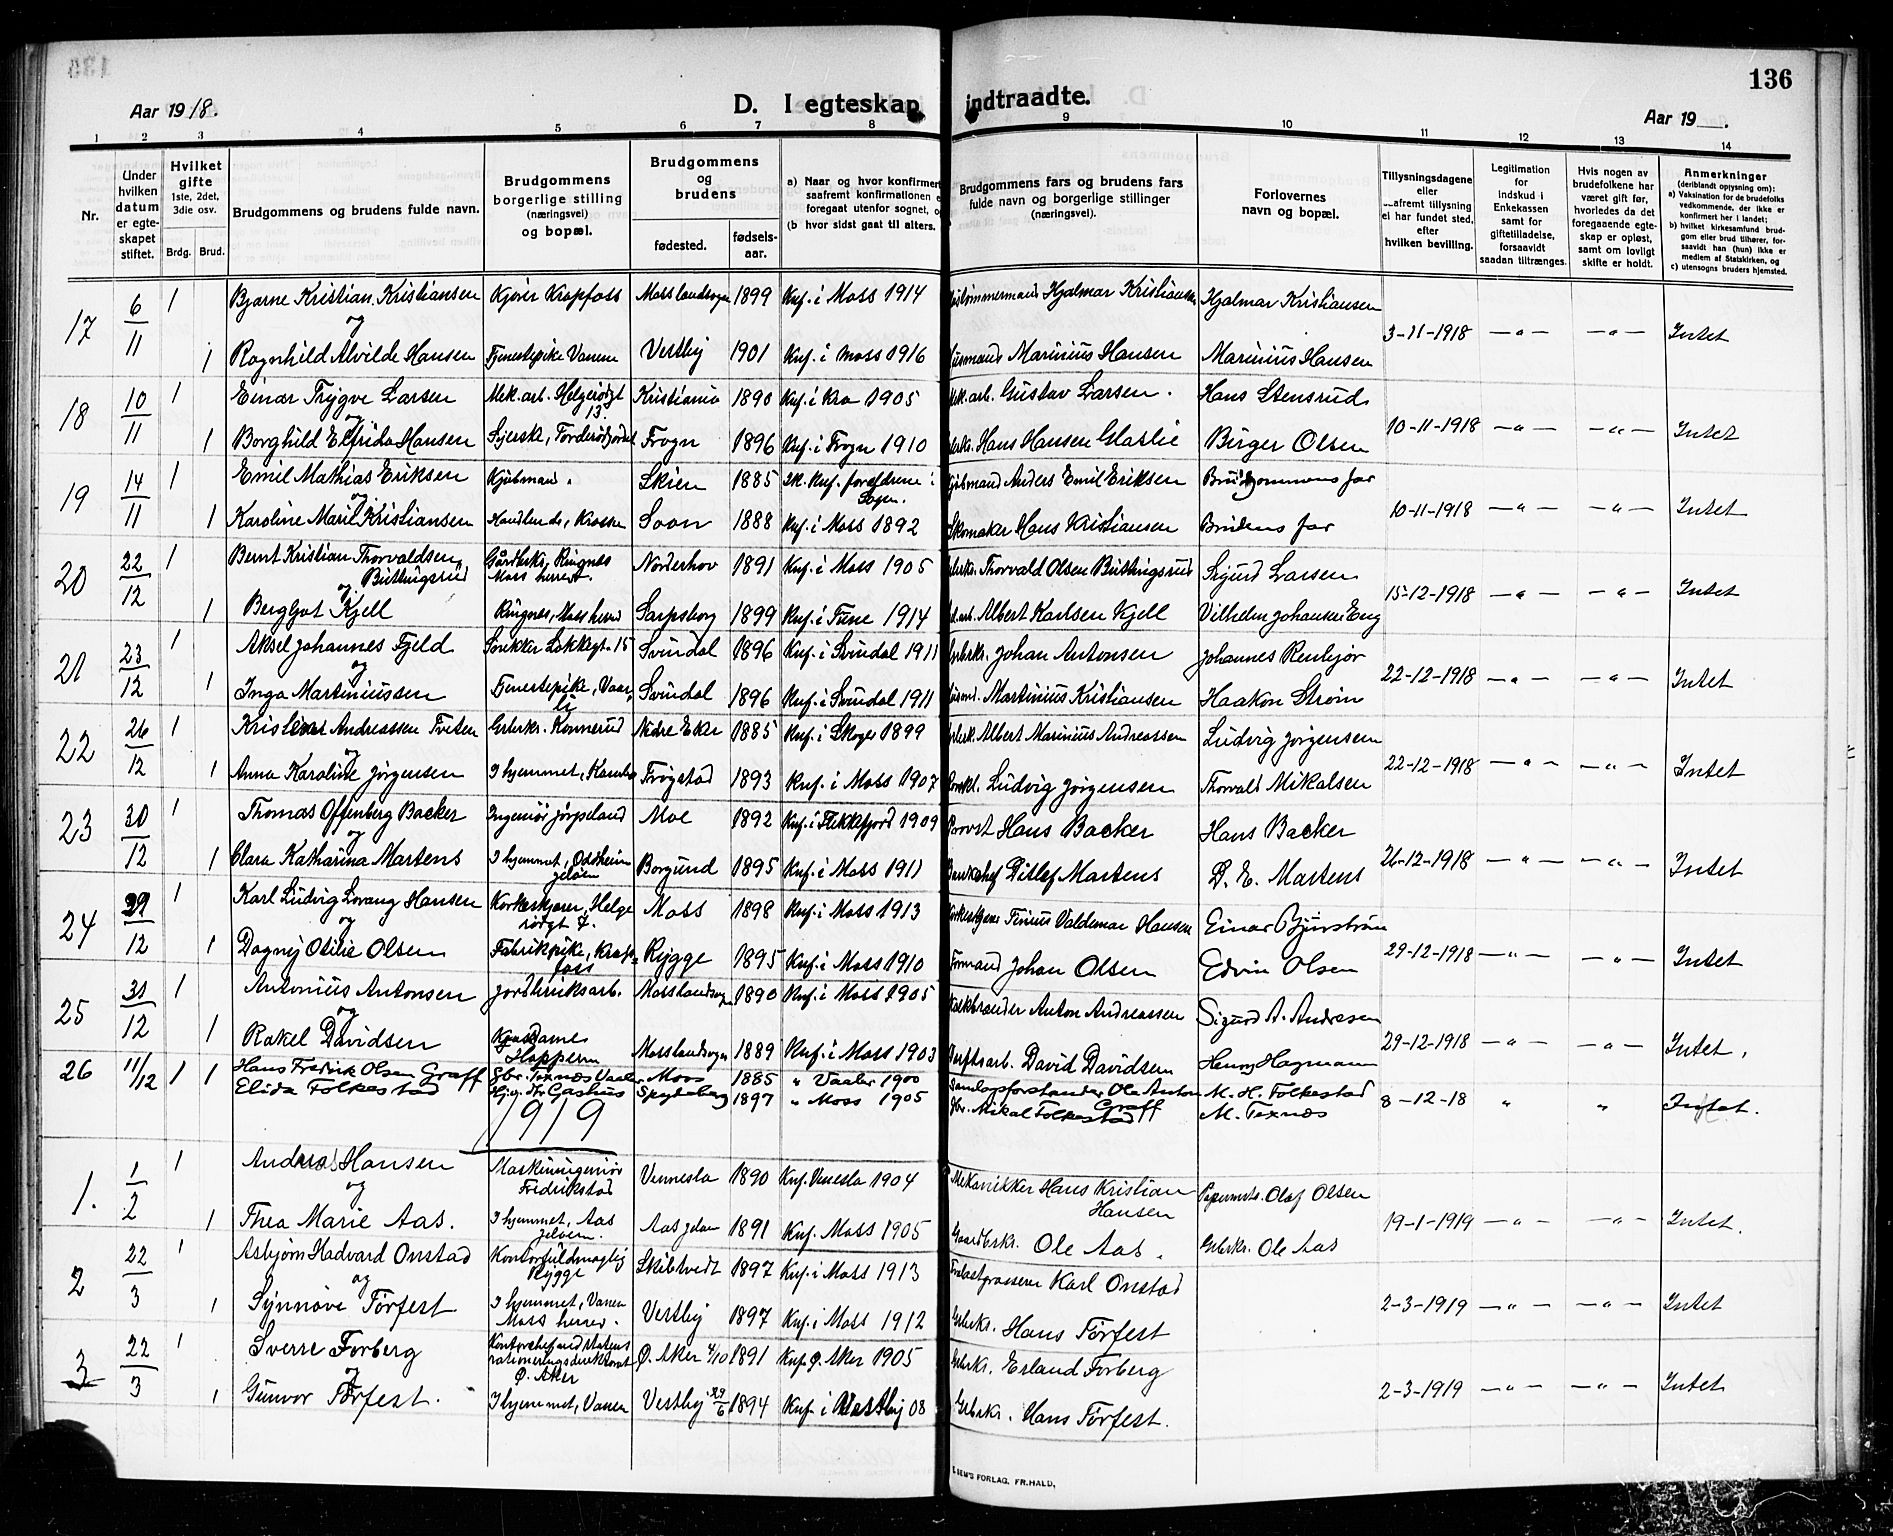 136
Aar 1918.
D. I egteskap indtraadte.
Aar 19__.
1 2 3 4 5 6 7 8 9 10 11 12 13 14
Nr.
Under hvilken datum er egteskapet stiftet.
Hvilket gifte 1ste, 2det, 3die osv.
Brdg. Brud.
Brudgommens og brudens fulde navn.
Brudgommens borgerlige stilling (næringsvei) og bopæl.
Brudgommens og brudens
fødested. fødselsaar.
a) Naar og hvor konfirmert
saafremt konfirmationen e
foregaat utenfor sognet, o
(b hvor sidst gaat til alters.
Brudgommens fars og brudens fars fulde navn og borgerlige stillinger (næringsvei).
Forlovernes navn og bopæl.
Tillysningsdagene eller saafremt tillysning ei har fundet sted, efter hvilken bevilling.
Legitimation for indskud i Enkekassen samt for giftetilladelse, forsaavidt saadan tiltrænges.
Hvis nogen av brudefolkene har været gift før, hvorledes da det foregaaende egteskap er opløst, samt om lovligt skifte er holdt.
Anmerkninger
(deriblandt opjysning om):
a) Vaksination for de brudefolks vedkommende, der ikke er konfirmert her i landet;
b) hvilket kirkesamfund brudgom eller brud tilhører, forsaavidt han (hun) ikke er medlem af Statskirken, og
c) utensogns bruders hjemsted.
17 6/11 1 Bjarne Kristian Kristiansen Kjører Krapfoss Moss landsogn 1899 Knf. i Moss 1914 Hjalmar Kristiansen Hjalmar Kristiansen
og 3-11-1918 — " — — " — Intet
1 Ragnhild Alvilde Hansen Tjenestepike Vanem Vestby 1901 Knf. i Moss 1916 Marinius Hansen Marinius Hansen
18 10/11 1 Einar Trygve Larsen Mek. arb. Helgerødgt 13. Kristiania 1890 Knf. i Kra 1905 Mek. arb. Gustav Larsen. Hans Stensrud
og 10-11-1918 — " — — " — Intet
1 Borghild Elfrida Hansen Syerske, Frogn 1896 Knf. i Frogn 1910 Hans Hansen Glaslie Birger Olsen
19 14/11 1 Emil Mathias Eriksen Kjøbmand. Skien 1885 Anders Emil Eriksen Brudgommens far
og 10-11-1918 — " — — " — Intet
1 Karoline Marie Kristiansen Soon 1888 Knf. i Moss 1892 Skomaker Hans Kristiansen Brudens far
20 22/12 1 Bernt Kristian Thorvaldsen Butlingsrud Gårdbrkr, Ringnes Moss herred. Norderhov 1891 Knf. i Moss 1905 Thorvald Olsen Butlingsrud Sigurd Larsen
og 15-12-1918 — " — — " — Intet
1 Bergljot Kjell Ringnes, Moss herred Sarpsborg 1899 Knf. i Tune 1914 Albert Karlsen Kjell Vilhelm Johansen Eng
21 23/12 1 Aksel Johannes Fjeld Snekker Løkkegt. 15 Svindal 1896 Knf. i Svindal 1911 Johan Antonsen Johannes Renhjør
og 22-12-1918 — " — — " — Intet
1 Inga Martiniussen Tjenestepike, Vaaler Svindal 1896 Knf. i Svindal 1911 Martinius Kristiansen Haakon Strøm
22 26/12 1 Andreassen Tveten Grbrkr. Konnerud Nedre Eker 1885 Knf. i Skoger 1899 Albert Marinius Andreassen Ludvig Jørgensen
og 22-12-1918 — " — — " — Intet
1 Anna Karoline Jørgensen I hjemmet, Kambo Trøgstad 1893 Knf. i Moss 1907 Ludvig Jørgensen Thorvald Mikalsen
23 30/12 1 Thomas Offenberg Backer Ingeniør Jørpeland Moe 1892 Knf. i Flekkefjord 1909 Provst Hans Backer Hans Backer
og 26-12-1918 — " — — " — Intet
1 Clara Katharina Martens I hjemmet, Oddheim Jeløen Borgund 1895 Knf. i Moss 1911 Bankchef Ditlef Martens D. E. Martens
24 29/12 1 Karl Ludvig Lovang Hansen Korkeskjærer, Helgerødgt Moss 1898 Knf. i Moss 1913 Korkeskjærer Tinius Valdemar Hansen Einar Bjurstrøm
og 29-12-1918 — " — — " — Intet
1 Dagny Otilie Olsen Fabrikpike, Krapfoss Rygge 1895 Knf. i Moss 1910 Formand Johan Olsen Edvin Olsen
25 31/12 1 Antonius Antonsen Jordbruksarb. Moss landsogn 1890 Knf. i Moss 1905 Kalkbrænder Anton Andreassen Sigurd A. Andresen
og 29-12-1918 — " — — " — Intet.
1 Rakel Davidsen Moss landsogn 1889 Knf. i Moss 1903 David Davidsen Henry Hagmann
26 11/12 1 1 Hans Fredrik Olsen Graff Gbr. Texnæs Vaaler Moss 1885 " Vaaler 1900 Samlagsforstander Ole Anton Graff M. H. Folkestad
Elida Folkestad Spydeberg 1897 " Moss 1905 Gbr. Mikal Folkestad M. Texnæs 8-12-18 " " Intet.
1919
1. 1/2 1 Andreas Hansen Maskiningeniør Fredrikstad Vennesla 1890 Knf. Venesla 1904 Mekanikker Hans Kristian Hansen Olaf Olsen
og 19-1-1919 — " — — " — Intet.
1 Thea Marie Aas. I hjemmet, Aas Jeløen. Aas Jeløen 1891 Knf. Moss 1905 Gaardbrkr. Ole Aas. Grbrkr. Ole Aas
2 22/3 1 Asbjørn Hadvard Onstad Kontorfuldmægtig Rygge Skibtvedt 1897 Knf. i Moss 1913 Karl Onstad
og 2-3-1919 — " — — " — Intet
1 Synnøve Førfest I hjemmet, Vanem Moss herred. Vestby 1897 Knf. i Moss 1912 Grbrkr. Hans Førfest
3 22/3 1 Sverre Forberg Kontorchef ved Statens rationeringsdirektorat Ø. Aker Ø. Aker 4/10 1891 Knf. Ø. Aker 1905 Grbrkr. Erland Forberg
og 2-3-1919 — " — — " — Intet
1 Gunvor Førfest. I hjemmet, Vanem Vestby 29/6 1894 Knf i Vestby 08 Grbrkr. Hans Førfest.
SEM'S FORLAG, FR.HALD,